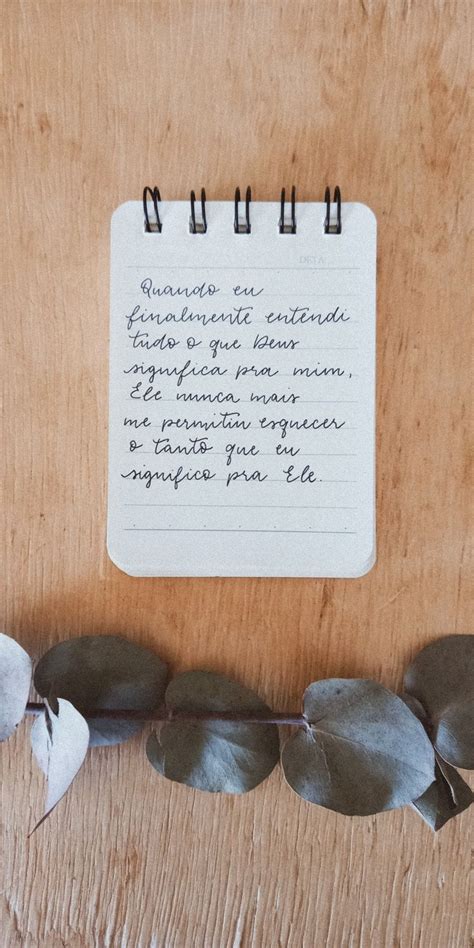 DATA
Quando eu
finalmente entendi
tudo o que Deus
significa pra mim,
Ele nunca mais
me permitiu esquecer
o tanto que eu
significo pra Ele.